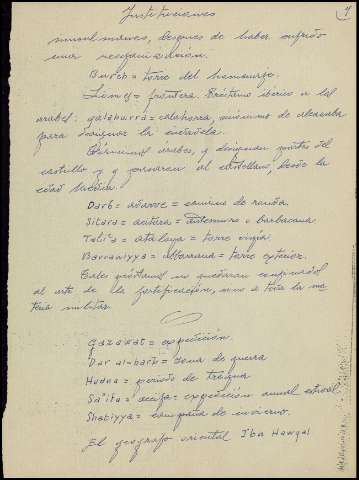 Instituciones
musulmanas, despues de haber sufrido
una reorganización.
Burch = torre del homenaje.
Limes = frontera. Préstamo iberico a los
arabes: galahurra = calahorra, sinonimo de alcazaba
para designar la ciudadela.
Términos arabes, y designan partes del
castillo y q pasaron al castellano, desde la
edad Media.
Darb = adarve = camino de ronda.
Sitara = acitara = antemuro o barbacana
Tali'a = atalaya = torre vigia.
Barraniyya = albarrana = torre exterior.
Estos préstamos no quedaron confinados
al arte de la fortificación, sino a toda la ma
teria militar.
Gazawat = expedición
Dar al-harb = zona de guerra
Hudna = periodo de tregua
Sa'ifa = aceifa = expedición anual estival
Shatiyya = campaña de invierno.
El geografo oriental Ibn Hawqal